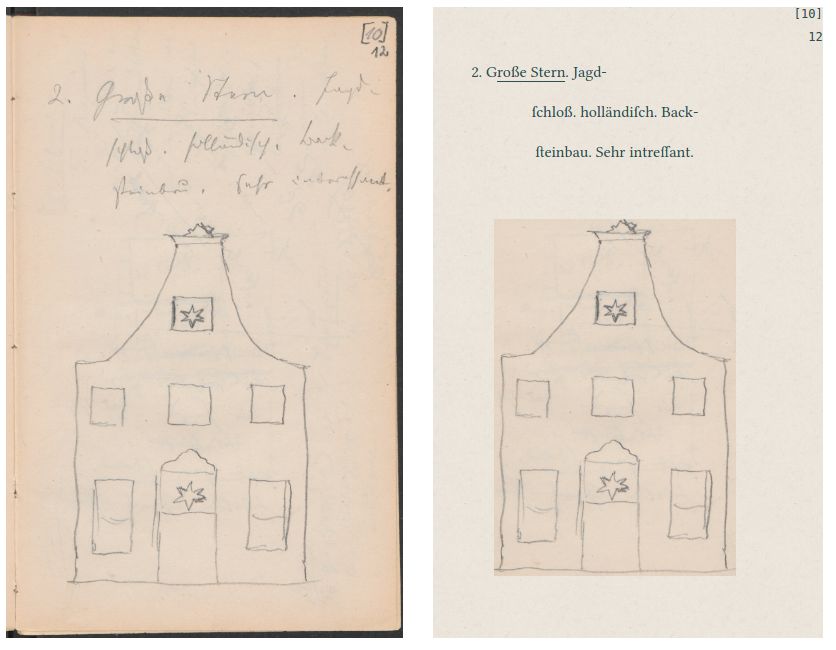 [10]
12
2. Große Stern. Jagd-
ſchloß. holländiſch. Back-
ſteinbau. Sehr intereſſant.
[10]
12
2. Große Stern. Jagd-
ſchloß. holländiſch. Back-
ſteinbau. Sehr intreſſant.